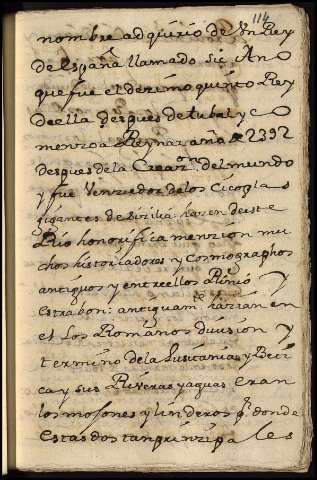 114
nombre adquirio de Un Rey
de España llamado Sic Ano
que fue el dezimo quinto Rey
de ella despues de tubal y co
menzo a Reynar año de 2392
despues de la Creaz.on del mundo
y fue Venzedor de los Cicoplas
gigantes de Sizilia: hazen de iste
Rio honorifica menzion mu
chos historiadores y cosmographos
antiguos y entre ellos Plinio y
estrabon: antiguam.te hazian en
el Los Romanos diuision y
termino de la Lusitania y Beti
ca y sus Riveras y aguas eran
los mojones y linderos p.r donde
estas dos tan prinzipales